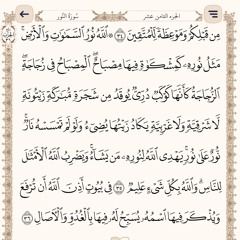 الجزء الثامن عشر سورة النور
مِن قَبْلِكُمْ وَمَوْعِظَةً لِّلْمُتَّقِينَ ٣٤ ۞ ٱللَّهُ نُورُ ٱلسَّمَٰوَٰتِ وَٱلْأَرْضِ
مَثَلُ نُورِهِۦ كَمِشْكَوٰةٍ فِيهَا مِصْبَاحٌ ٱلْمِصْبَاحُ فِى زُجَاجَةٍ
ٱلزُّجَاجَةُ كَأَنَّهَا كَوْكَبٌ دُرِّىٌّ يُوقَدُ مِن شَجَرَةٍ مُّبَٰرَكَةٍ زَيْتُونَةٍ
لَّا شَرْقِيَّةٍ وَلَا غَرْبِيَّةٍ يَكَادُ زَيْتُهَا يُضِىٓءُ وَلَوْ لَمْ تَمْسَسْهُ نَارٌ
نُّورٌ عَلَىٰ نُورٍ يَهْدِى ٱللَّهُ لِنُورِهِۦ مَن يَشَآءُ وَيَضْرِبُ ٱللَّهُ ٱلْأَمْثَٰلَ
لِلنَّاسِ وَٱللَّهُ بِكُلِّ شَىْءٍ عَلِيمٌ ٣٥ فِى بُيُوتٍ أَذِنَ ٱللَّهُ أَن تُرْفَعَ
وَيُذْكَرَ فِيهَا ٱسْمُهُۥ يُسَبِّحُ لَهُۥ فِيهَا بِٱلْغُدُوِّ وَٱلْءَاصَالِ ٣٦